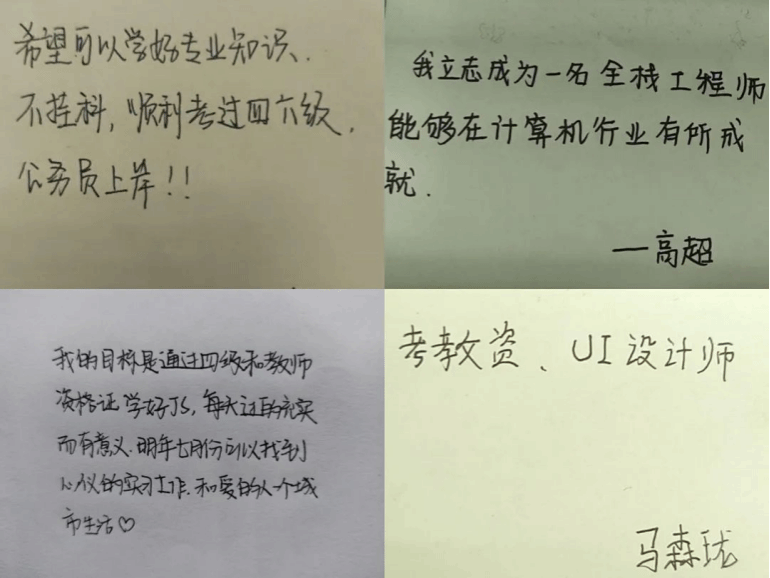 希望可以学好专业知识、
不挂科，顺利考过四六级，
公务员上岸！！
我立志成为一名全栈工程师
能够在计算机行业有所成
就．
一高超
我的目标是通过四级和教师
资格证 学好JS，每天过的充实
而有意义．明年七月份可以找到
心仪的实习工作．和爱的人一个城
市生活♡
考教资、UI设计师
马森珑